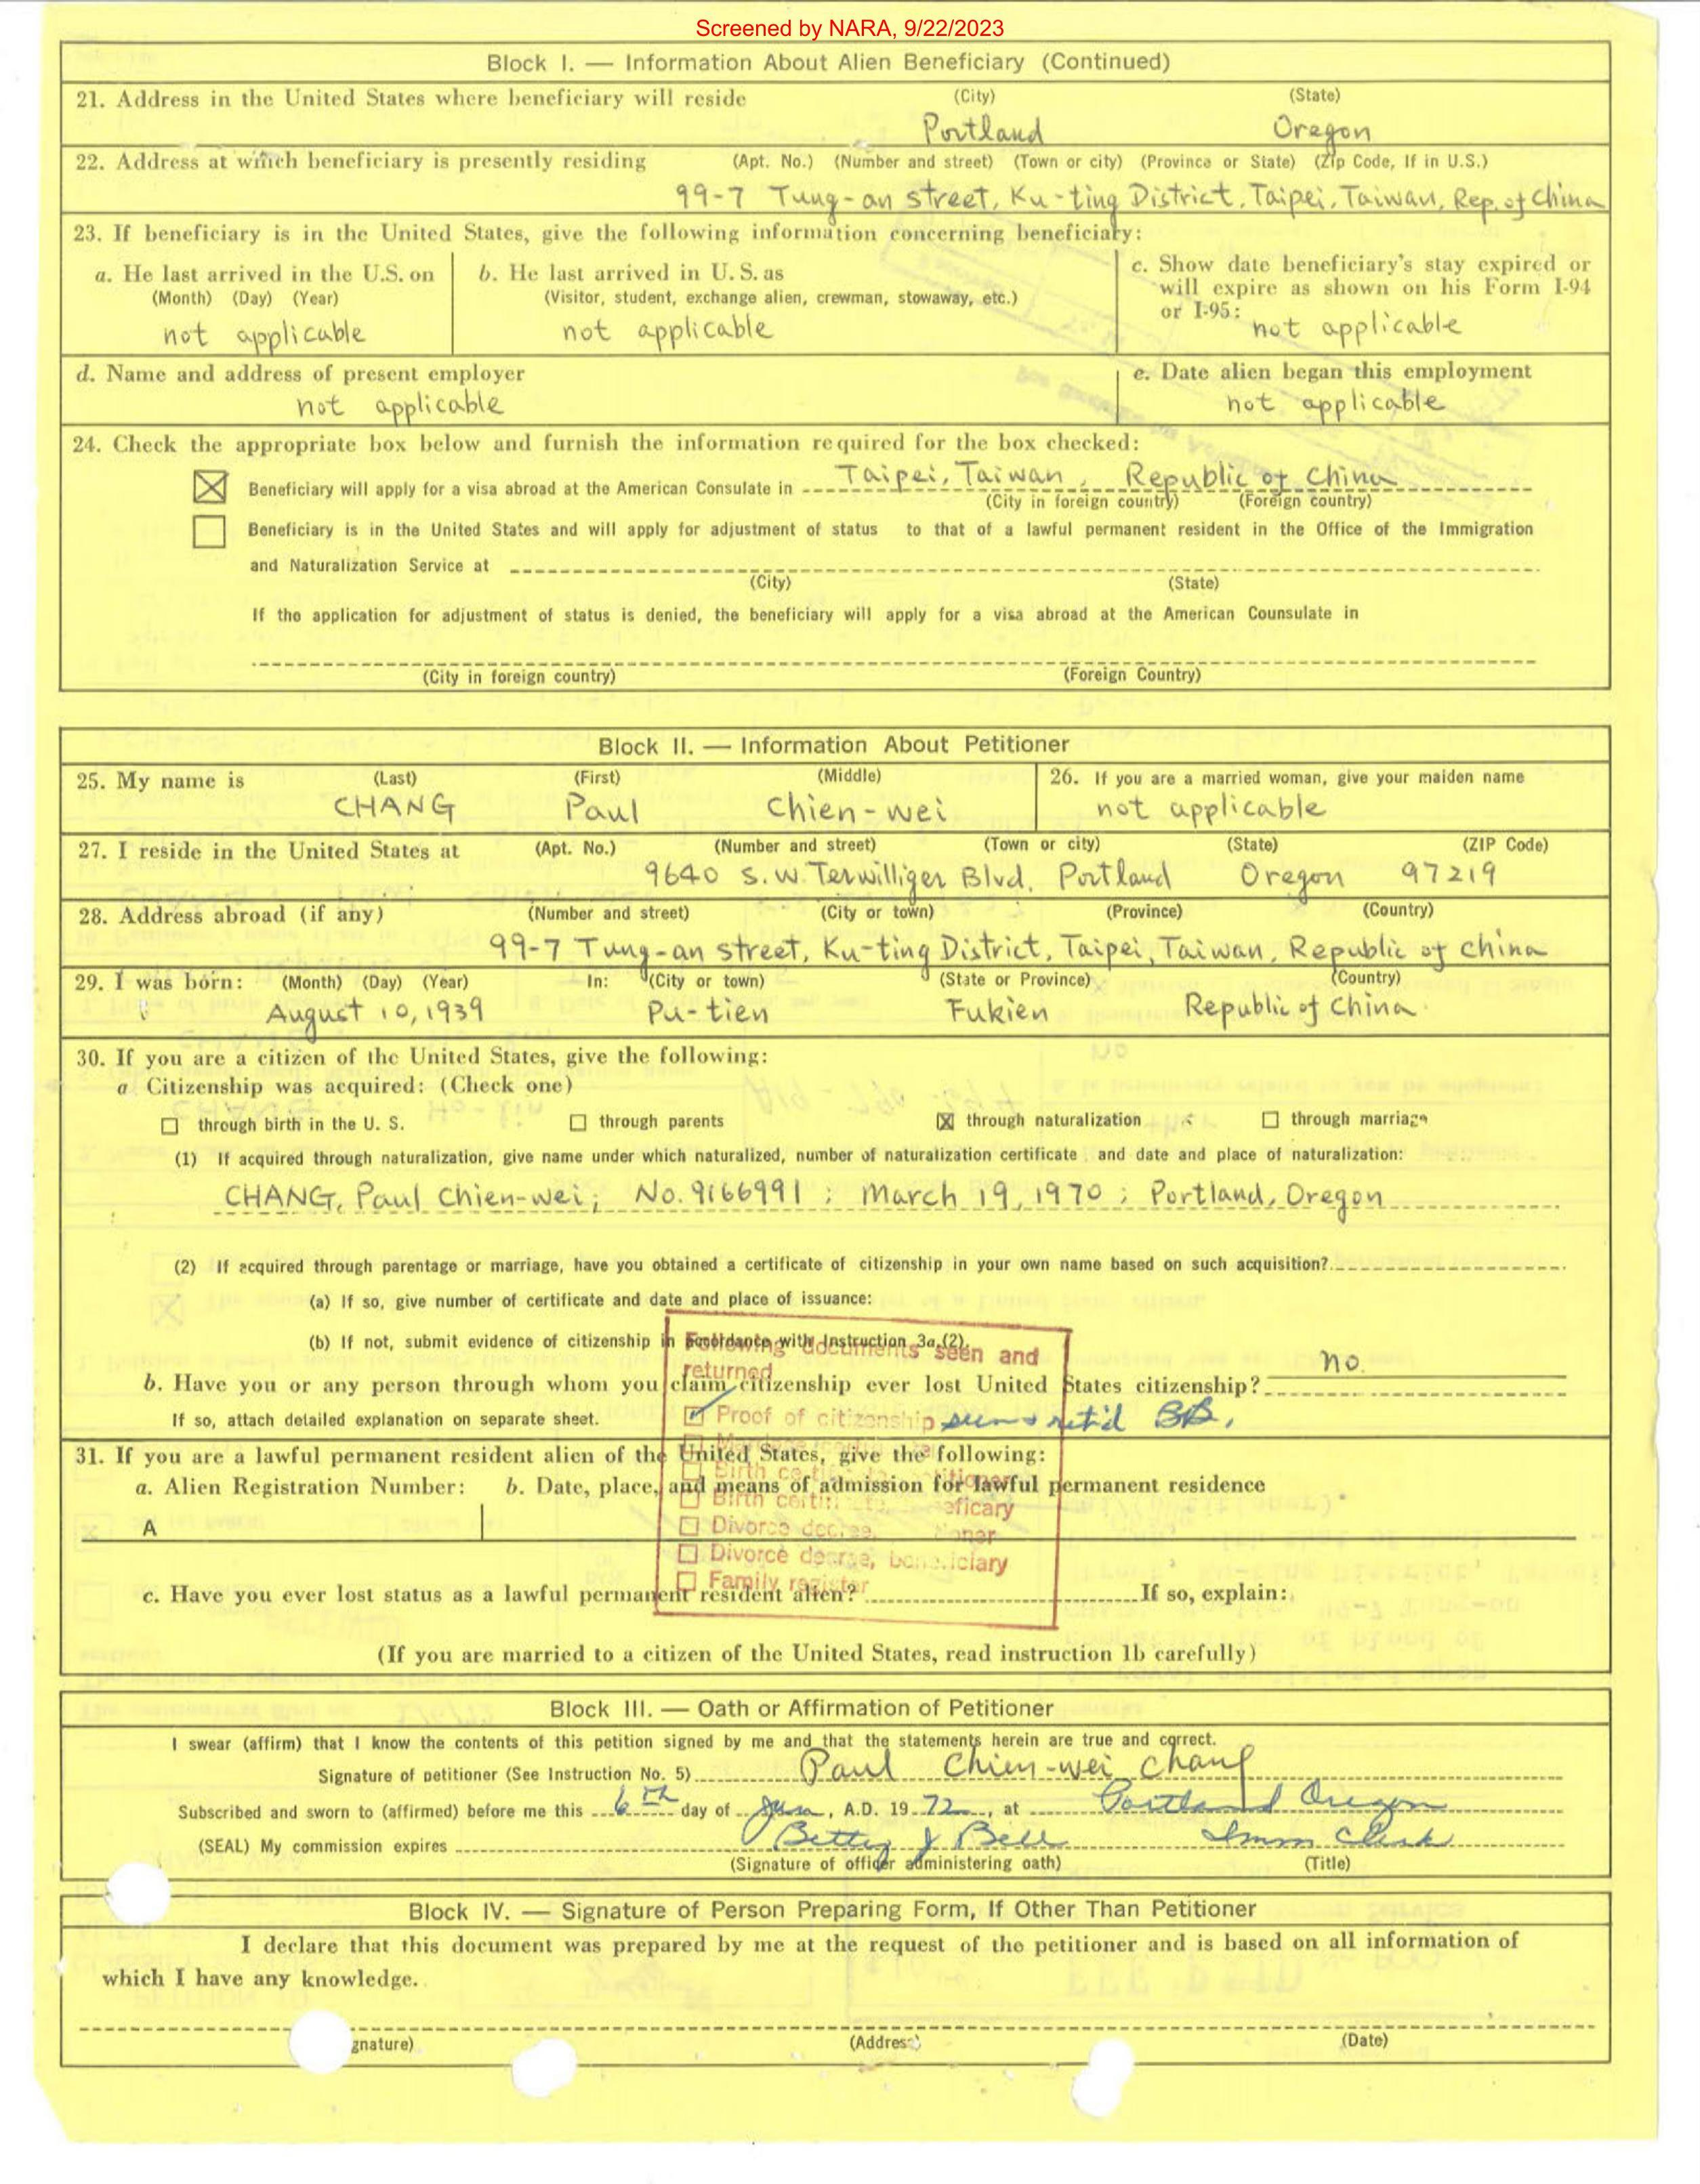 Screened by NARA, 9/22/2023
Block I. — Information About Alien Beneficiary (Continued)
21. Address in the United States where beneficiary will reside (City) (State)
Portland Oregon
22. Address at which beneficiary is presently residing (Apt. No.) (Number and street) (Town or city) (Province or State) (Zip Code, If in U.S.)
99-7 Tung-an street, Ku-ting District, Taipei, Taiwan, Rep. of China
23. If beneficiary is in the United States, give the following information concerning beneficiary:
a. He last arrived in the U.S. on
(Month) (Day) (Year)
not applicable
b. He last arrived in U.S. as
(Visitor, student, exchange alien, crewman, stowaway, etc.)
not applicable
c. Show date beneficiary's stay expired or
will expire as shown on his Form I-94
or I-95:
not applicable
d. Name and address of present employer
not applicable
e. Date alien began this employment
not applicable
24. Check the appropriate box below and furnish the information required for the box checked:
Beneficiary will apply for a visa abroad at the American Consulate in Taipei, Taiwan, Republic of China
(City in foreign country) (Foreign country)
Beneficiary is in the United States and will apply for adjustment of status to that of a lawful permanent resident in the Office of the Immigration
and Naturalization Service at
(City) (State)
If the application for adjustment of status is denied, the beneficiary will apply for a visa abroad at the American Counsulate in
(City in foreign country) (Foreign Country)
Block II. — Information About Petitioner
25. My name is (Last) (First) (Middle)
CHANG Paul Chien-wei
26. If you are a married woman, give your maiden name
not applicable
27. I reside in the United States at (Apt. No.) (Number and street) (Town or city) (State) (ZIP Code)
9640 S.W. Terwilliger Blvd. Portland Oregon 97219
28. Address abroad (if any) (Number and street) (City or town) (Province) (Country)
99-7 Tung-an street, Ku-ting District, Taipei, Taiwan, Republic of China
29. I was born: (Month) (Day) (Year) In: (City or town) (State or Province) (Country)
August 10, 1939 Pu-tien Fukien Republic of China
30. If you are a citizen of the United States, give the following:
a Citizenship was acquired: (Check one)
through birth in the U. S. through parents through naturalization through marriage
(1) If acquired through naturalization, give name under which naturalized, number of naturalization certificate and date and place of naturalization:
CHANG, Paul Chien-wei; No. 9166991; March 19, 1970; Portland, Oregon
(2) If acquired through parentage or marriage, have you obtained a certificate of citizenship in your own name based on such acquisition?
(a) If so, give number of certificate and date and place of issuance:
(b) If not, submit evidence of citizenship in accordance with Instruction 3a.(2).
Following documents seen and
returned
b. Have you or any person through whom you claim citizenship ever lost United States citizenship? no.
If so, attach detailed explanation on separate sheet.
Proof of citizenship seen & ret'd BB.
31. If you are a lawful permanent resident alien of the United States, give the following:
a. Alien Registration Number: b. Date, place, and means of admission for lawful permanent residence
Birth certificate, beneficiary
A
Divorce decree,
Divorce decree, beneficiary
Family register
c. Have you ever lost status as a lawful permanent resident alien? If so, explain:
(If you are married to a citizen of the United States, read instruction 1b carefully)
Block III. — Oath or Affirmation of Petitioner
I swear (affirm) that I know the contents of this petition signed by me and that the statements herein are true and correct.
Signature of petitioner (See Instruction No. 5) Paul Chien-wei Chang
Subscribed and sworn to (affirmed) before me this 6th day of Jan, A.D. 19 72, at Portland Oregon
(SEAL) My commission expires Betty J Bell Imm Clerk
(Signature of officer administering oath) (Title)
Block IV. — Signature of Person Preparing Form, If Other Than Petitioner
I declare that this document was prepared by me at the request of the petitioner and is based on all information of
which I have any knowledge.
gnature) (Address) (Date)